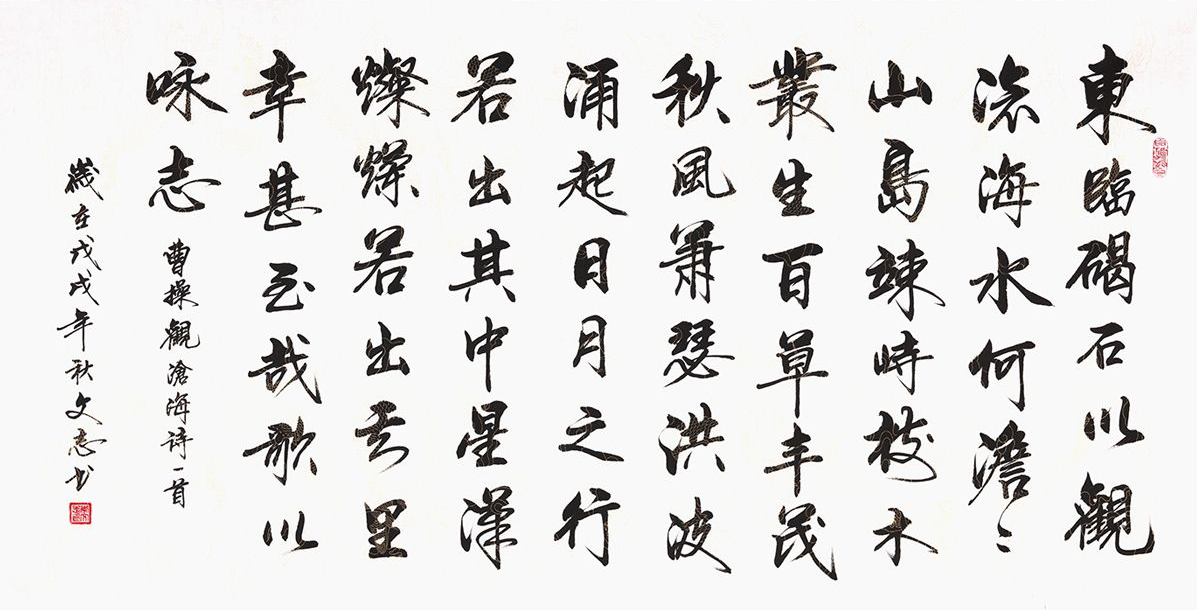 東臨碣石以觀
滄海水何澹〻
山島竦峙樹木
叢生百草丰茂
秋風蕭瑟洪波
涌起日月之行
若出其中星漢
燦爛若出其里
幸甚至哉歌以
咏志 曹操觀滄海诗一首
歲在戊戌年秋文志书